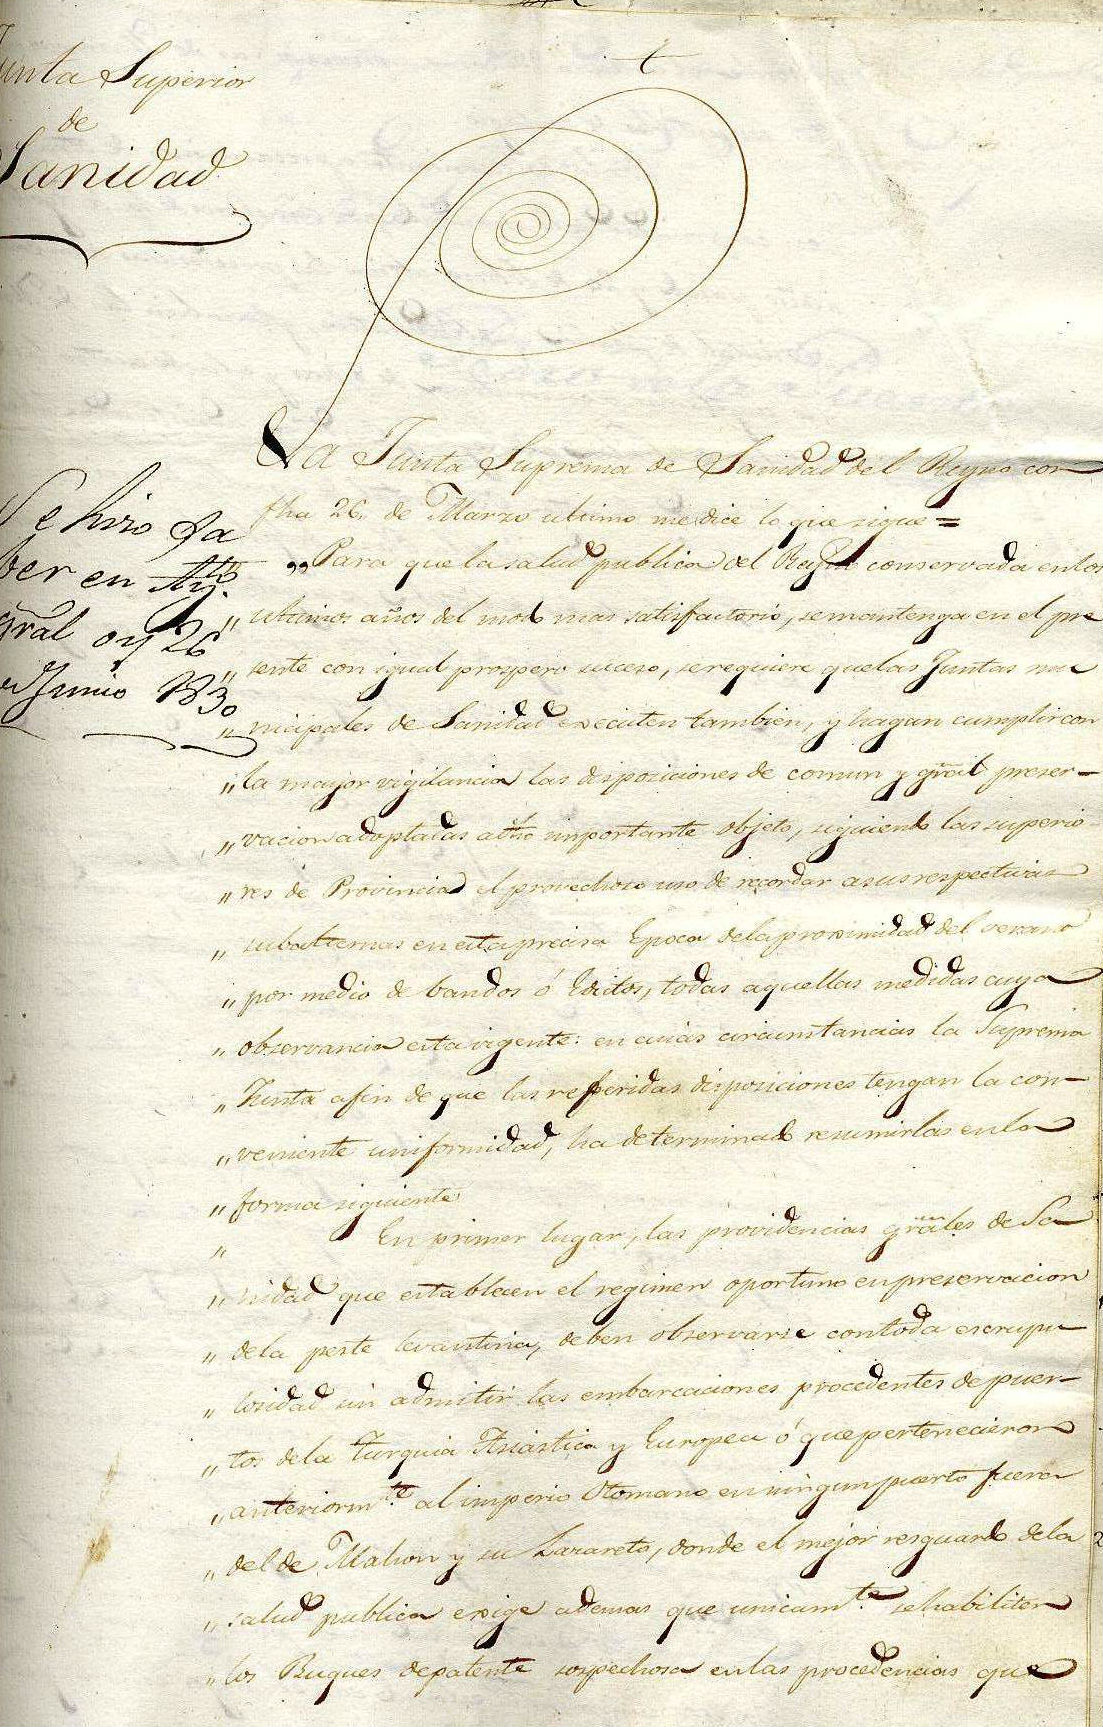 Junta Superior
de
Sanidad
La Junta Suprema de Sanidad del Reyno con
fha 26. de Marzo ultimo me dice lo que sigue =
„Para que la salud publica del Reyno conservada en los
„ ultimos años del modo mas satisfactorio, se mantenga en el pre
„ sente con igual prospero suceso, se requiere que las Juntas mu
„ nicipales de Sanidad executen tambien, y hagan cumplir con
„ la mayor vigilancia las disposiciones de comun y gral preser-
„ vacion adoptadas a dho importante objeto, siguiendo las superio
„ res de Provincia el provechoso uso de recordar a sus respectivas
„ subalternas en esta precisa Epoca de la proximidad del verano
„ por medio de bandos ó Edictos, todas aquellas medidas cuya
„ observancia esta vigente: en cuias circunstancias la Suprema
„ Junta afin de que las referidas disposiciones tengan la con-
„ veniente uniformidad, ha determinado resumirlas en la
„ forma siguiente
„ En primer lugar, las providencias grales de Sa
„ nidad que establecen el regimen oportuno en preservacion
„ de la peste levantina, deben observarse con toda escrupu-
„ losidad sin admitir las embarcaciones procedentes de puer-
„ tos de la Turquia Asiastica y Europea ó que pertenecieron
„ anteriormte al imperio Otomano en ningun puerto fuera
„ del de Mahon y su Lazareto, donde el mejor resguardo de la
„ salud publica exige ademas que unicamte se habiliten
„ los Buques de patente sospechosa en las procedencias que
Se hizo sa
ver en Ayto
gral oy 26
de Junio 1830
2